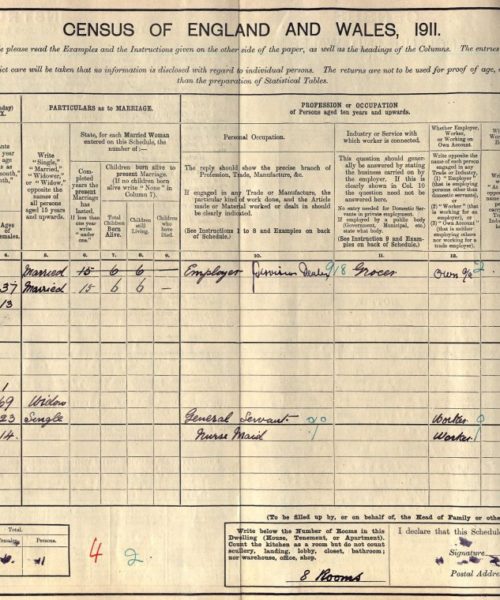 CENSUS OF ENGLAND AND WALES, 1911.
please read the Examples and the Instructions given on the other side of the paper, as well as the headings of the Columns. The entries
ict care will be taken that no information is disclosed with regard to individual persons. The returns are not to be used for proof of age,
than the preparation of Statistical Tables.
PARTICULARS as to MARRIAGE.
PROFESSION or OCCUPATION
of Persons aged ten years and upwards.
Write
"Single,"
"Married,"
"Widower,"
or "Widow,"
opposite the
names of
all persons
aged 15
years and
upwards.
State, for each Married Woman
entered on this Schedule, the
number of:—
Completed
years the
present
Marriage
has
lasted.
If less than
one year
write
"under
one."
Children born alive to
present Marriage.
(If no children born
alive write "None" in
Column 7).
Total
Children
Born
Alive.
Children
still
Living.
Children
who
have
Died.
Personal Occupation.
The reply should show the precise branch of
Profession, Trade, Manufacture, &c.
If engaged in any Trade or Manufacture, the
particular kind of work done, and the Article
made or Material worked or dealt in should
be clearly indicated.
(See Instructions 1 to 8 and Examples on
back of Schedule.)
Industry or Service with
which worker is connected.
This question should generally
be answered by stating
the business carried on by
the employer. If this is
clearly shown in Col. 10
the question need not be
answered here.
No entry needed for Domestic Servants
in private employment.
If employed by a public body
(Government, Municipal, etc.)
state what body.
(See Instruction 9 and Examples
on back of Schedule.)
Whether Employer,
Worker,
or Working on
Own Account.
Write opposite the
name of each person
engaged in any
Trade or Industry,
(1) "Employer" (that
is employing persons
other than domestic
servants),
or (2) "Worker" (that
is working for an
employer), or
(3) "Own Account"
(that is neither
employing others
nor working for a
trade employer).
4. 5. 6. 7. 8. 9. 10. 11. 12.
Married 15 6 6 — Employer Provision Dealer 918 Grocer Own a/c 2
37 Married 15 6 6 —
13
1
69 Widow
23 Single General Servant Worker
14 Nurse Maid Worker
(To be filled up by, or on behalf of, the Head of Family or other
Total.
Females. Persons.
11
4 2
Write below the Number of Rooms in this
Dwelling (House, Tenement, or Apartment).
Count the kitchen as a room but do not count
scullery, landing, lobby, closet, bathroom;
nor warehouse, office, shop.
8 Rooms
I declare that this Schedule
Signature
Postal Address